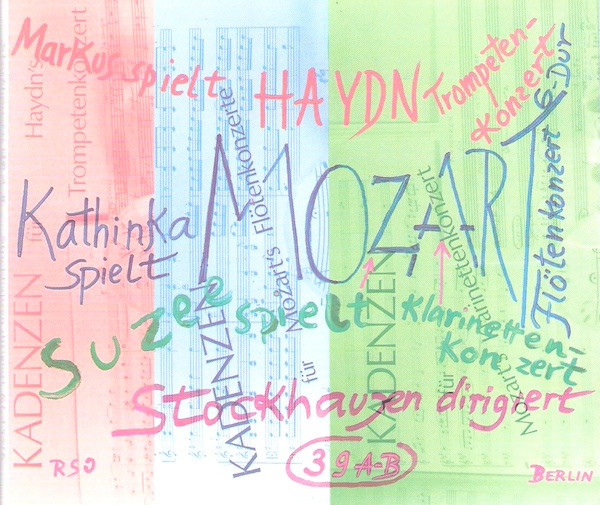 Markus spielt HAYDN Trompeten-
konzert
MOZART
Kathinka
spielt
Flötenkonzert G-Dur
Suzee spielt Klarinetten-
konzert
Stockhausen dirigiert
RSO
39 A-B
BERLIN
KADENZEN
für
Haydn's
Trompetenkonzert
KADENZEN
für
Mozart's Flötenkonzerte
KADENZEN
für
Mozart's Klarinettenkonzert